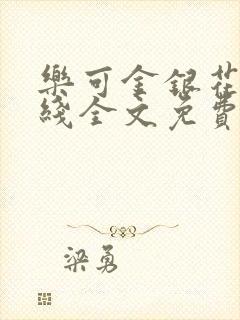 樂可金銀花
綫全文免費
梁勇